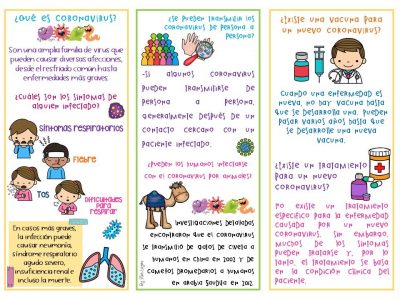 ¿QUÉ ES CORONAVIRUS?
Son una amplia familia de virus que
pueden causar diversas afecciones,
desde el resfriado común hasta
enfermedades más graves.
¿Cuáles son los síntomas de
alguien infectado?
Síntomas respiratorios
Fiebre
Tos
Dificultades
para
respirar
En casos más graves,
la infección puede
causar neumonía,
síndrome respiratorio
agudo severo,
insuficiencia renal e
incluso la muerte.
¿Se pueden transmitir los
coronavirus de persona a
persona?
-Sí algunos coronavirus
pueden transmitirse de
persona a persona,
generalmente después de un
contacto cercano con un
paciente infectado.
¿Pueden los humanos infectarse
con el coronavirus por animales?
Investigaciones detalladas
encontraron que el coronavirus
se transmitía de gatos de civeta a
humanos en China en 2002 y de
camellos dromedarios a humanos
en Arabia Saudila en 2012.
¿Existe una vacuna para
un nuevo coronavirus?
Cuando una enfermedad es
nueva, no hay vacuna hasta
que se desarrolla una. Pueden
pasar varios años hasta que
se desarrolle una nueva
vacuna.
¿Existe un tratamiento
para un nuevo
coronavirus?
No existe un tratamiento
específico para la enfermedad
causada por un nuevo
coronavirus. Sin embargo,
muchos de los síntomas
pueden tratarse y, por lo
tanto, el tratamiento se basa
en la condición clínica del
paciente.